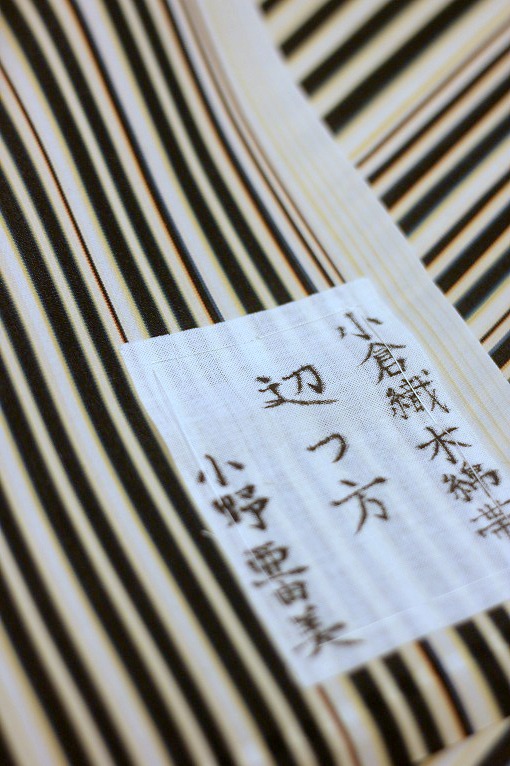 小倉織木綿帯
辺つ方
小野亜美